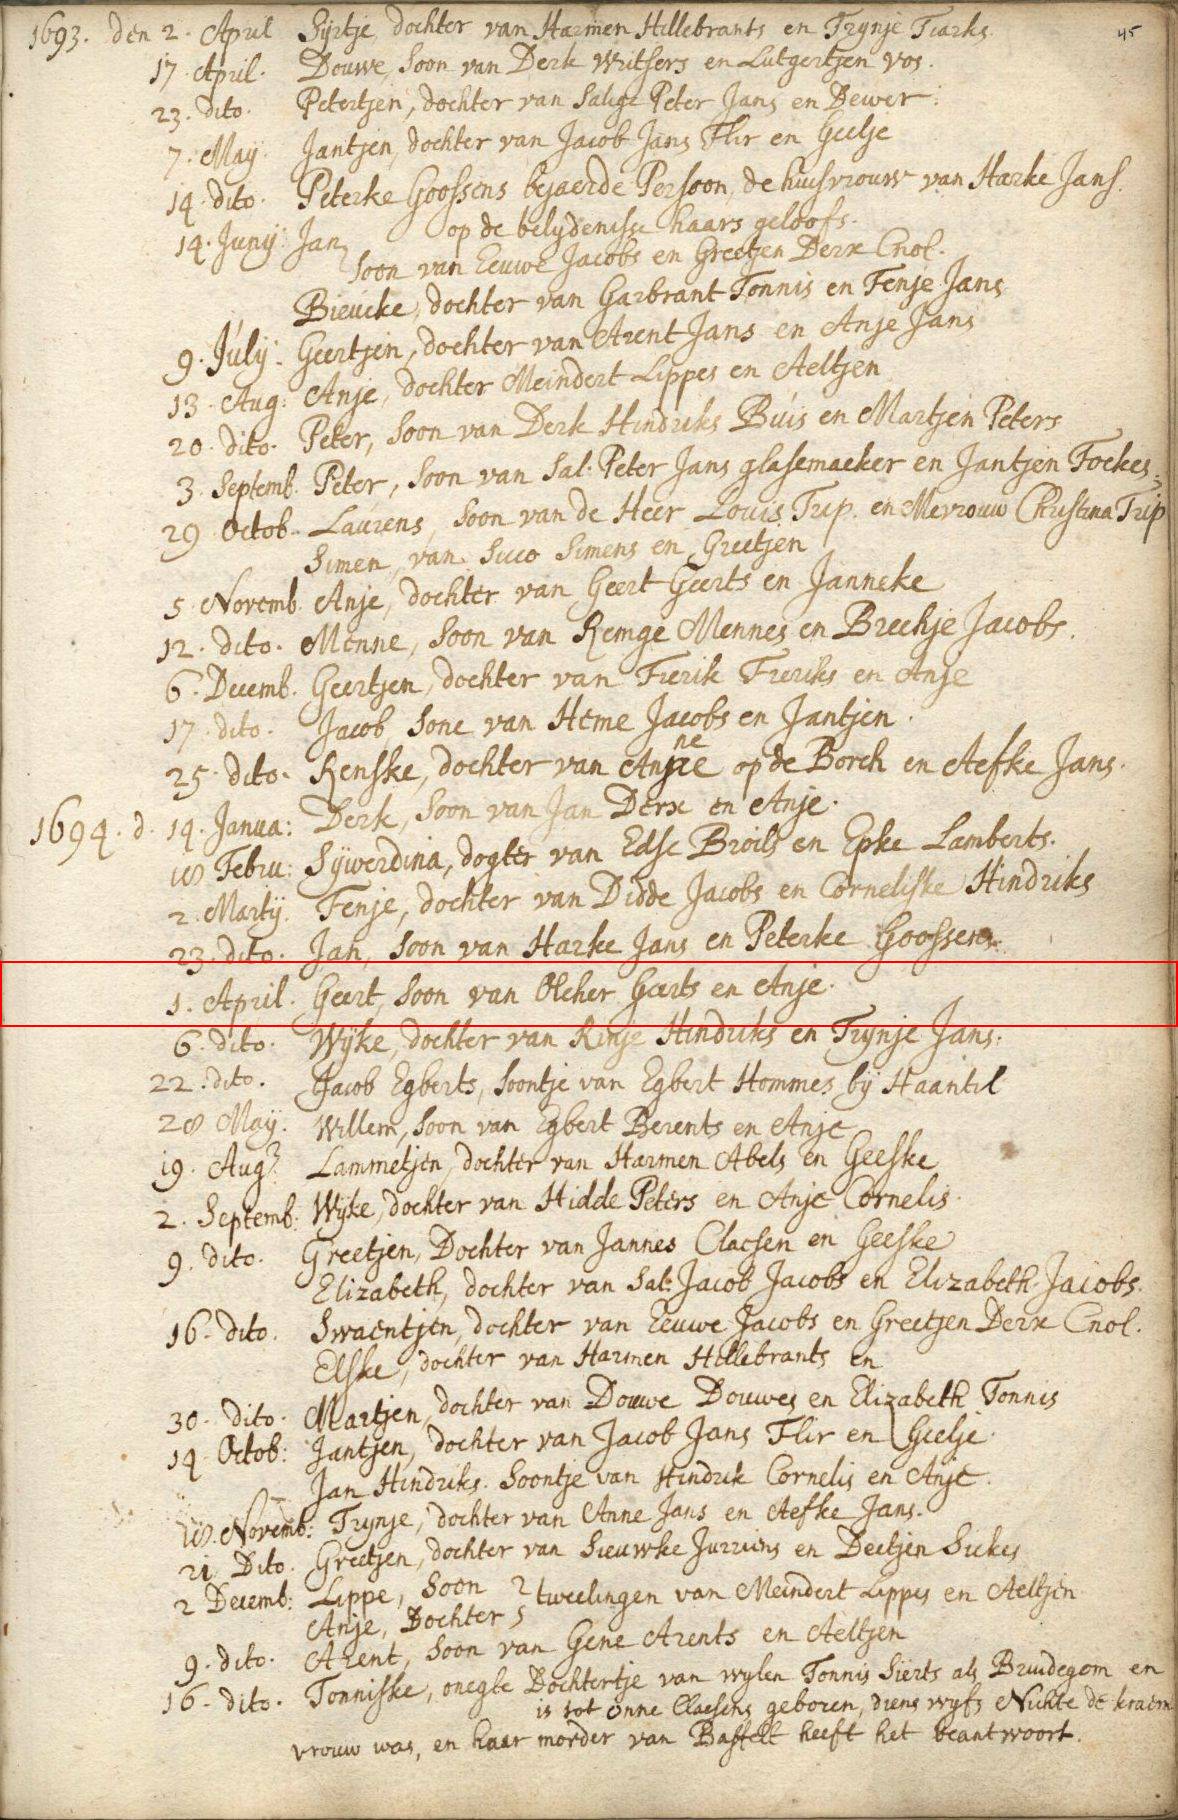 45
1693. den 2. April Sijrtje dochter van Harmen Hillebrants en Trynje Tiarks.
17. April. Douwe, Soon van Derk Writsers en Lutgertjen Vos.
23. dito. Petertjen, dochter van Salige Peter Jans en Dewer.
7. Maij. Jantjen, dochter van Jacob Jans Flir en Geelje
14. dito. Peterke Goossens bejaerde Persoon, de huisvrouw van Harke Jans.
op de belydenisse haars geloofs.
14. Junij: Jan,
Soon van Eeuwe Jacobs en Greetjen Derx Cnol.
Bieucke, dochter van Garbrant Tonnis en Fenje Jans
9. Júlij. Geertjen, dochter van Arent Jans en Anje Jans
13. Aug: Anje, dochter Meindert Lippes en Aeltjen
20. dito. Peter, Soon van Derk Hindriks Búis en Martjen Peters
3. Septemb. Peter, Soon van Sal. Peter Jans glasemaeker en Jantjen Fockes.
29 Octob. Laúrens, Soon van de Heer Louis Trip. en Mevrouw Christina Trip
Simen, van Sicco Simens en Greetjen
5. Novemb. Anje, dochter van Geert Geerts en Janneke
12. dito. Menne, Soon van Remge Mennes en Breehje Jacobs.
6. Decemb. Geertjen, dochter van Frerik Freriks en Anje
17. dito. Jacob Sone van Heme Jacobs en Jantjen.
ne
25. dito. Renske, dochter van op de Borch en Aefke Jans.
1694. d. 14. Janua: Derk, Soon van Jan Derx en Anje.
18 Febru: Sijwerdina, dogter van Edse Broils en Epke Lamberts.
2. Martij. Fenje, dochter van Didde Jacobs en Corneliske Hindriks
23. dito. Jan, Soon van Harke Jans en Peterke Goossens.
1. April. Geert, Soon van Olcher Geerts en Anje.
6. dito. Wijke, dochter van Rinje Hindriks en Trynje Jans.
22. dito. Jacob Egberts, Soontje van Egbert Hommes bij Haantil
28 Maij. Willem, Soon van Egbert Berents en Anje
19. Aug. Lammetjen, dochter van Harmen Abels en Geeske
2. Septemb: Wijke, dochter van Hidde Peters en Anje Cornelis.
9. dito. Greetjen, Dochter van Jannes Claesen en Geeske
Elizabeth, dochter van Sal: Jacob Jacobs en Elizabeth Jacobs.
16. dito. Swaentjen, dochter van Eeuwe Jacobs en Greetjen Derx Cnol.
Elske, dochter van Harmen Hillebrants en
30. dito. Martjen, dochter van Douwe Douwes en Elizabeth Tonnis
14 Octob: Jantjen, dochter van Jacob Jans Flir en Geelje.
Jan Hindriks. Soontje van Hindrik Cornelis en Anje.
18. Novemb: Trynje, dochter van Anne Jans en Aefke Jans.
21 Dito. Greetjen, dochter van Sieuwke Jurriens en Deetjen Sickes
2 Decemb: Lippe, Soon } tweelingen van Meindert Lippes en Aeltjen
Anje, Dochter }
9. dito. Arent, Soon van Gene Arents en Aeltjen
16. dito. Tonniske, onegte Dochtertje van wylen Tonnis Sierts als Bruidegom en
is tot onne Claesens geboren, diens wyfs Nichte de kraem
vrouw was, en haar moeder van Basselt heeft het beantwoort.